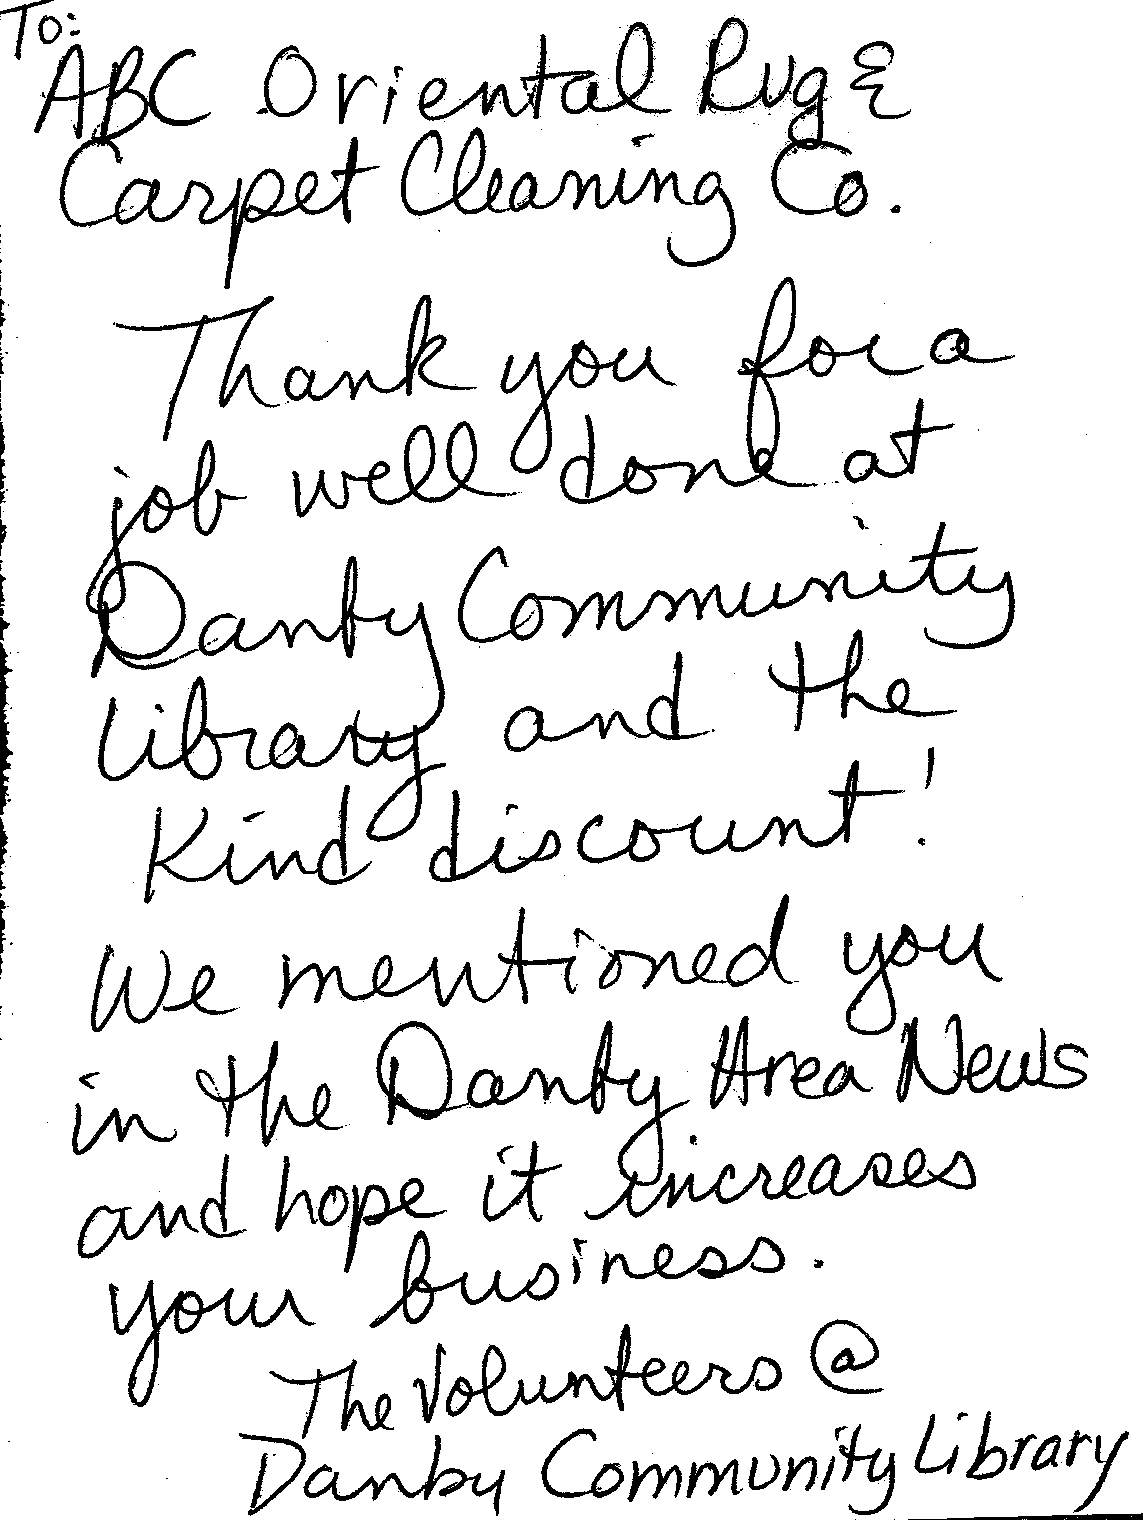 To:
ABC Oriental Rug &
Carpet Cleaning Co.
Thank you for a
job well done at
Danby Community
Library and the
Kind discount!
We mentioned you
in the Danby Area News
and hope it increases
your business.
The Volunteers @
Danby Community Library